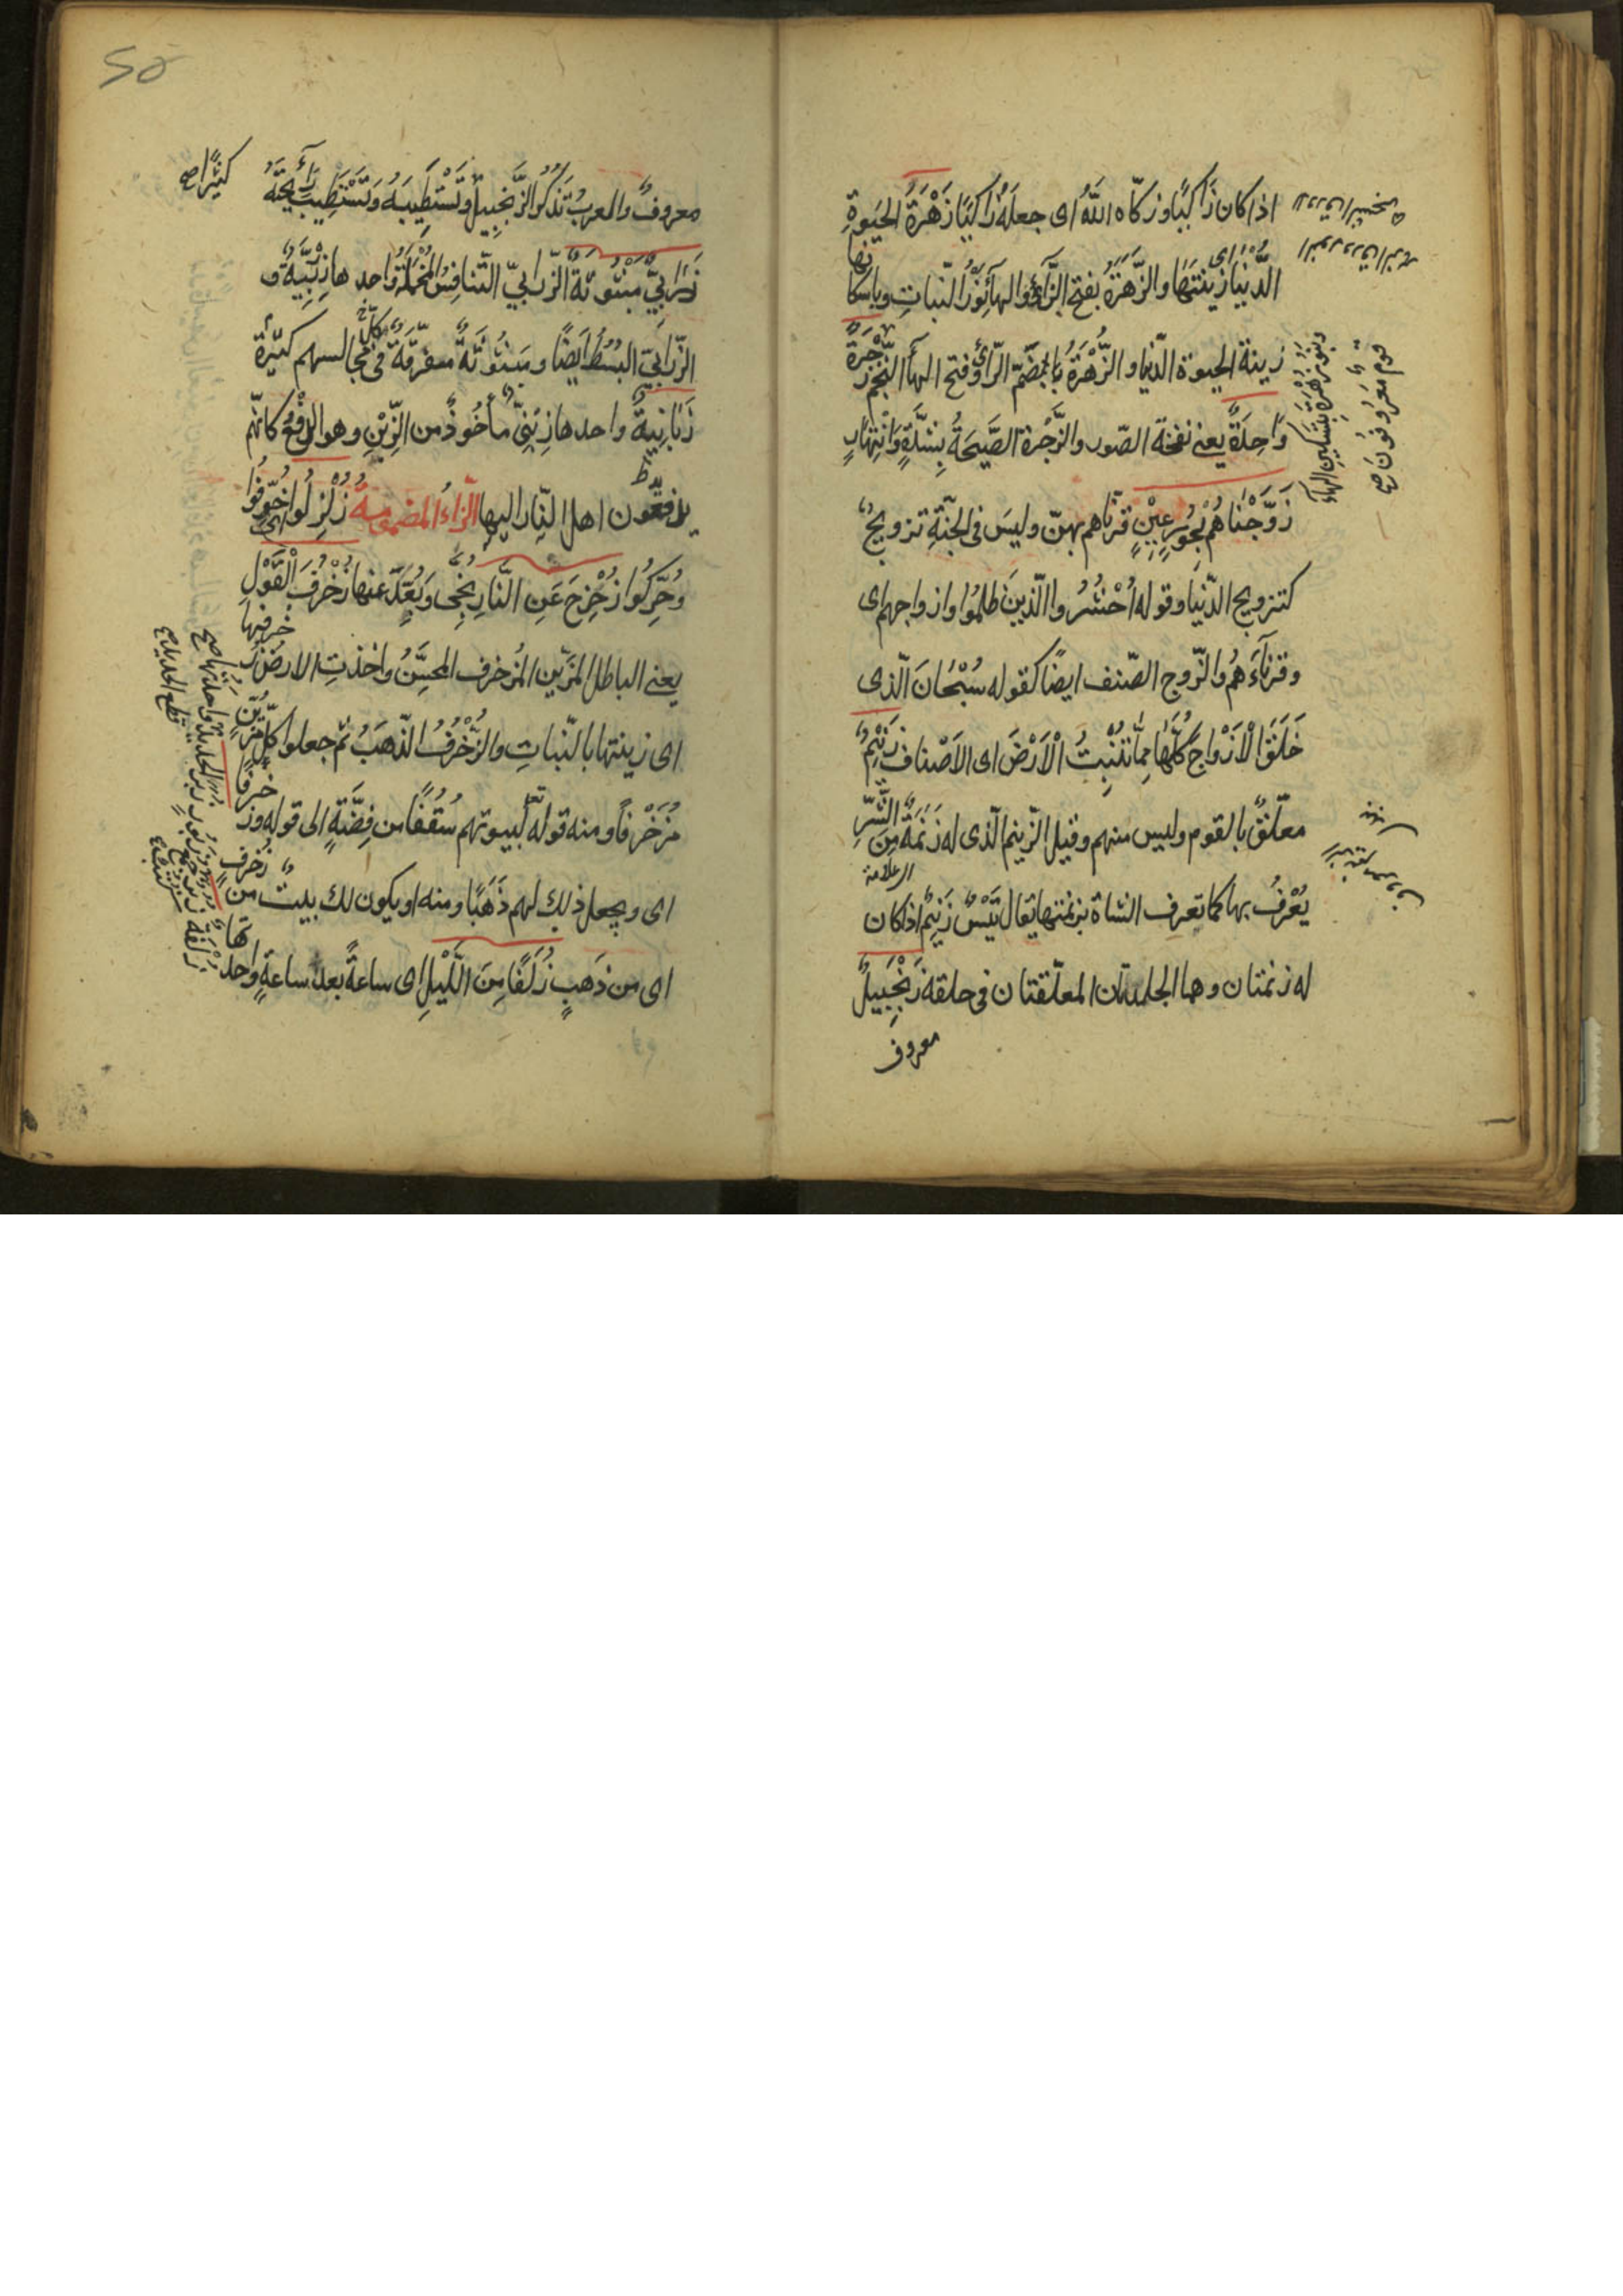 اذا كان زَاكيًا وزكّاه اللّٰه اى جعلَهُ زَاكيًا زَهْرَةَ الحَيٰوةِ
الدُّنْيَا اى زِينَتَهَا والزَّهَرَةُ بفتح الزّاَىِ والهاَءِ نَوْرُ النّباتِ وباسكا
نها
زينة الحيوة الدّنيا و الزُّهَرَةُ بضمّ الزّاى وفتح الهاَء النّجم زَجْرَةٌ
وَاحِدَةٌ يعنى نفخة الصّور والزَّجْرة الصَّيحَةُ بِشدَّةٍ وَانْتِهَارٍ
زَوَّجْنَاهُمْ بِحُورٍ عِيْنٍ قرنّاهم بهنّ وليسَ فى الجنّةِ تزويجٌ
كتزويج الدّنيا وقوله اُحْشُرُوا الّذينَ ظلمُوا وازواجهم اى
وقرنآءَهُم والزّوج الصّنف ايضًا كقوله سُبْحَانَ الّذى
خَلَقَ الْاَزْوَاجَ كُلَّهَا مِمَّا تُنْبِتُ الْاَرْضَ اى الاَصْناف زَنِيْمٌ
معلّقٌ بالقوم وليس منهم وقيل الزّنيم الّذى له زَنَمَةٌ مِنَ الشَّرِّ
العلامة
يُعْرَفُ بها كما تعرف الشاة بزنمتها يقال تَيْسٌ زَنِيمٌ اذا كان
له زنمتان وهما الجلدتان المعلّقتان فى حلقه زَنْجَبِيلٌ
معروف
قوم مَعْرُوفُونَ صح
وبنو زُهْرَة بتسكين الهآء
معروفٌ والعربُ تَذكُرُ الزَّنجبِيلَ وتَسْتَطِيبَهُ وَتَسْتَطِيبُ رَائِحَتَهُ
كثيرًا صح
زَرَابِيُّ مَبْثُوثَةٌ الزّرابيّ الطّنافِسُ المُخْمَلَةُ واحدها زِرْبِيَّةٌ و
الزّرَابيّ البُسُطُ ايضًا ومَبْثُوثَةٌ متفرّقةٌ فى كلّ مجالسهم كثيرة
زَبَانِيَةٌ واحدها زِبْنِىٌّ مأخُوذٌ من الزَّبْنِ وهو الدفعُ كانّهم
يدفعون اهل النّار اليها الزّاءُ المضمومةُ زُلْزِلُوا خُوِّفُوا
وحُرِّكُوا زُحْزِحَ عَنِ النَّارِ نُجِّى وَبُعِّدَ عنها زُخْرُفَ الْقَوْلِ
يعنى الباطل المزَيّن المُزخرف المحسَّنُ واخذتِ الارضُ زُ
خرفها
اى زينتها بالنّباتِ والزُّخْرُفُ الذّهَبُ ثم جعلوا كلّ مزيّن
مُزَخْرفًا ومنه قوله تعالى لبيوتهم سُقُفًا من فِضَّةٍ الى قوله وزُ
خرفًا
اى ويجعل ذلك لهم ذَهَبًا ومنه او يكون لك بيتٌ من زخرف
اى من ذَهبٍ زُلَفًا مِنَ اللَّيْلِ اى ساعةً بعد ساعةٍ واحد
تها
زُلْفَةٌ
قطع الحديد صح